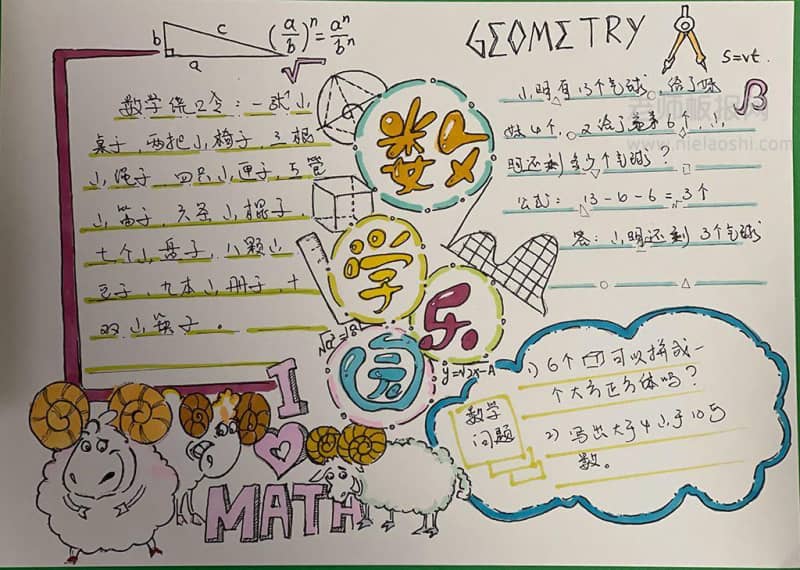 b
c
a
(a/b)ⁿ=aⁿ/bⁿ
√
GEOMETRY
S=vt
β
数学绕口令：一张小
桌子，两把小椅子，三根
小绳子，四只小匣子，5管
小笛子，六条小棍子，
七个小盘子，八颗小
豆子，九本小册子，十
双小筷子。
数
学
乐
园
小明有13个气球，给了妹
妹4个，又给了弟弟6个，小
明还剩多少个气球？
公式：
= 3个
答：小明还剩3个气球
老师板报网
www.nielaoshi.com
数学
问题
1）6个 可以拼成一
个大方正方体吗？
2）写出大于4小于10的
数。
I
MATH